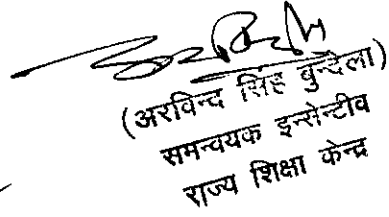 (अरविन्द सिंह बुन्देला)
समन्वयक इन्सेन्टीव
राज्य शिक्षा केन्द्र